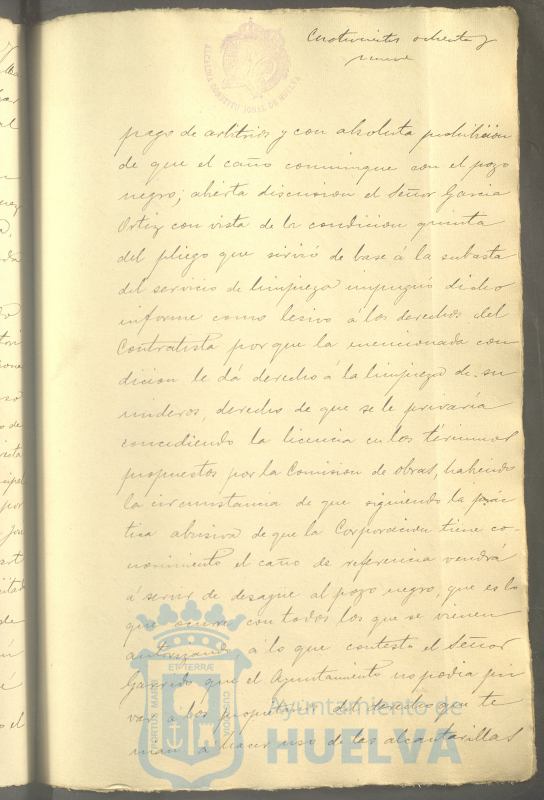 Cuatrocientos ochenta y
nueve
ALCALDIA CONSTITUCIONAL DE HUELVA
pago de arbitrios y con absoluta prohibicion
de que el caño comunique con el pozo
negro; abierta discusion el Señor Garcia
Ortiz con vista de la condicion quinta
del pliego que sirvió de base á la subasta
del servicio de limpieza impugnó dicho
informe como lesivo á los derechos del
Contratista por que la mencionada con
dicion le dá derecho á la limpieza de su
mideros, derecho de que se le privaría
concediendo la licencia en los términos
propuestos por la Comision de obras, habiendo
la circunstancia de que siguiendo la prác
tica abusiva de que la Corporacion tiene co-
nocimiento el caño de referencia vendrá
á servir de desagüe al pozo negro, que es lo
que ocurre con todos los que se vienen
autorizando á lo que contestó el Señor
Garrido que el Ayuntamiento no podia pri
var a los propietarios del derecho que te
nian á hacer uso de las alcantarillas
PORTUS MARIS ET TERRÆ CUSTODIA
Ayuntamiento de
HUELVA